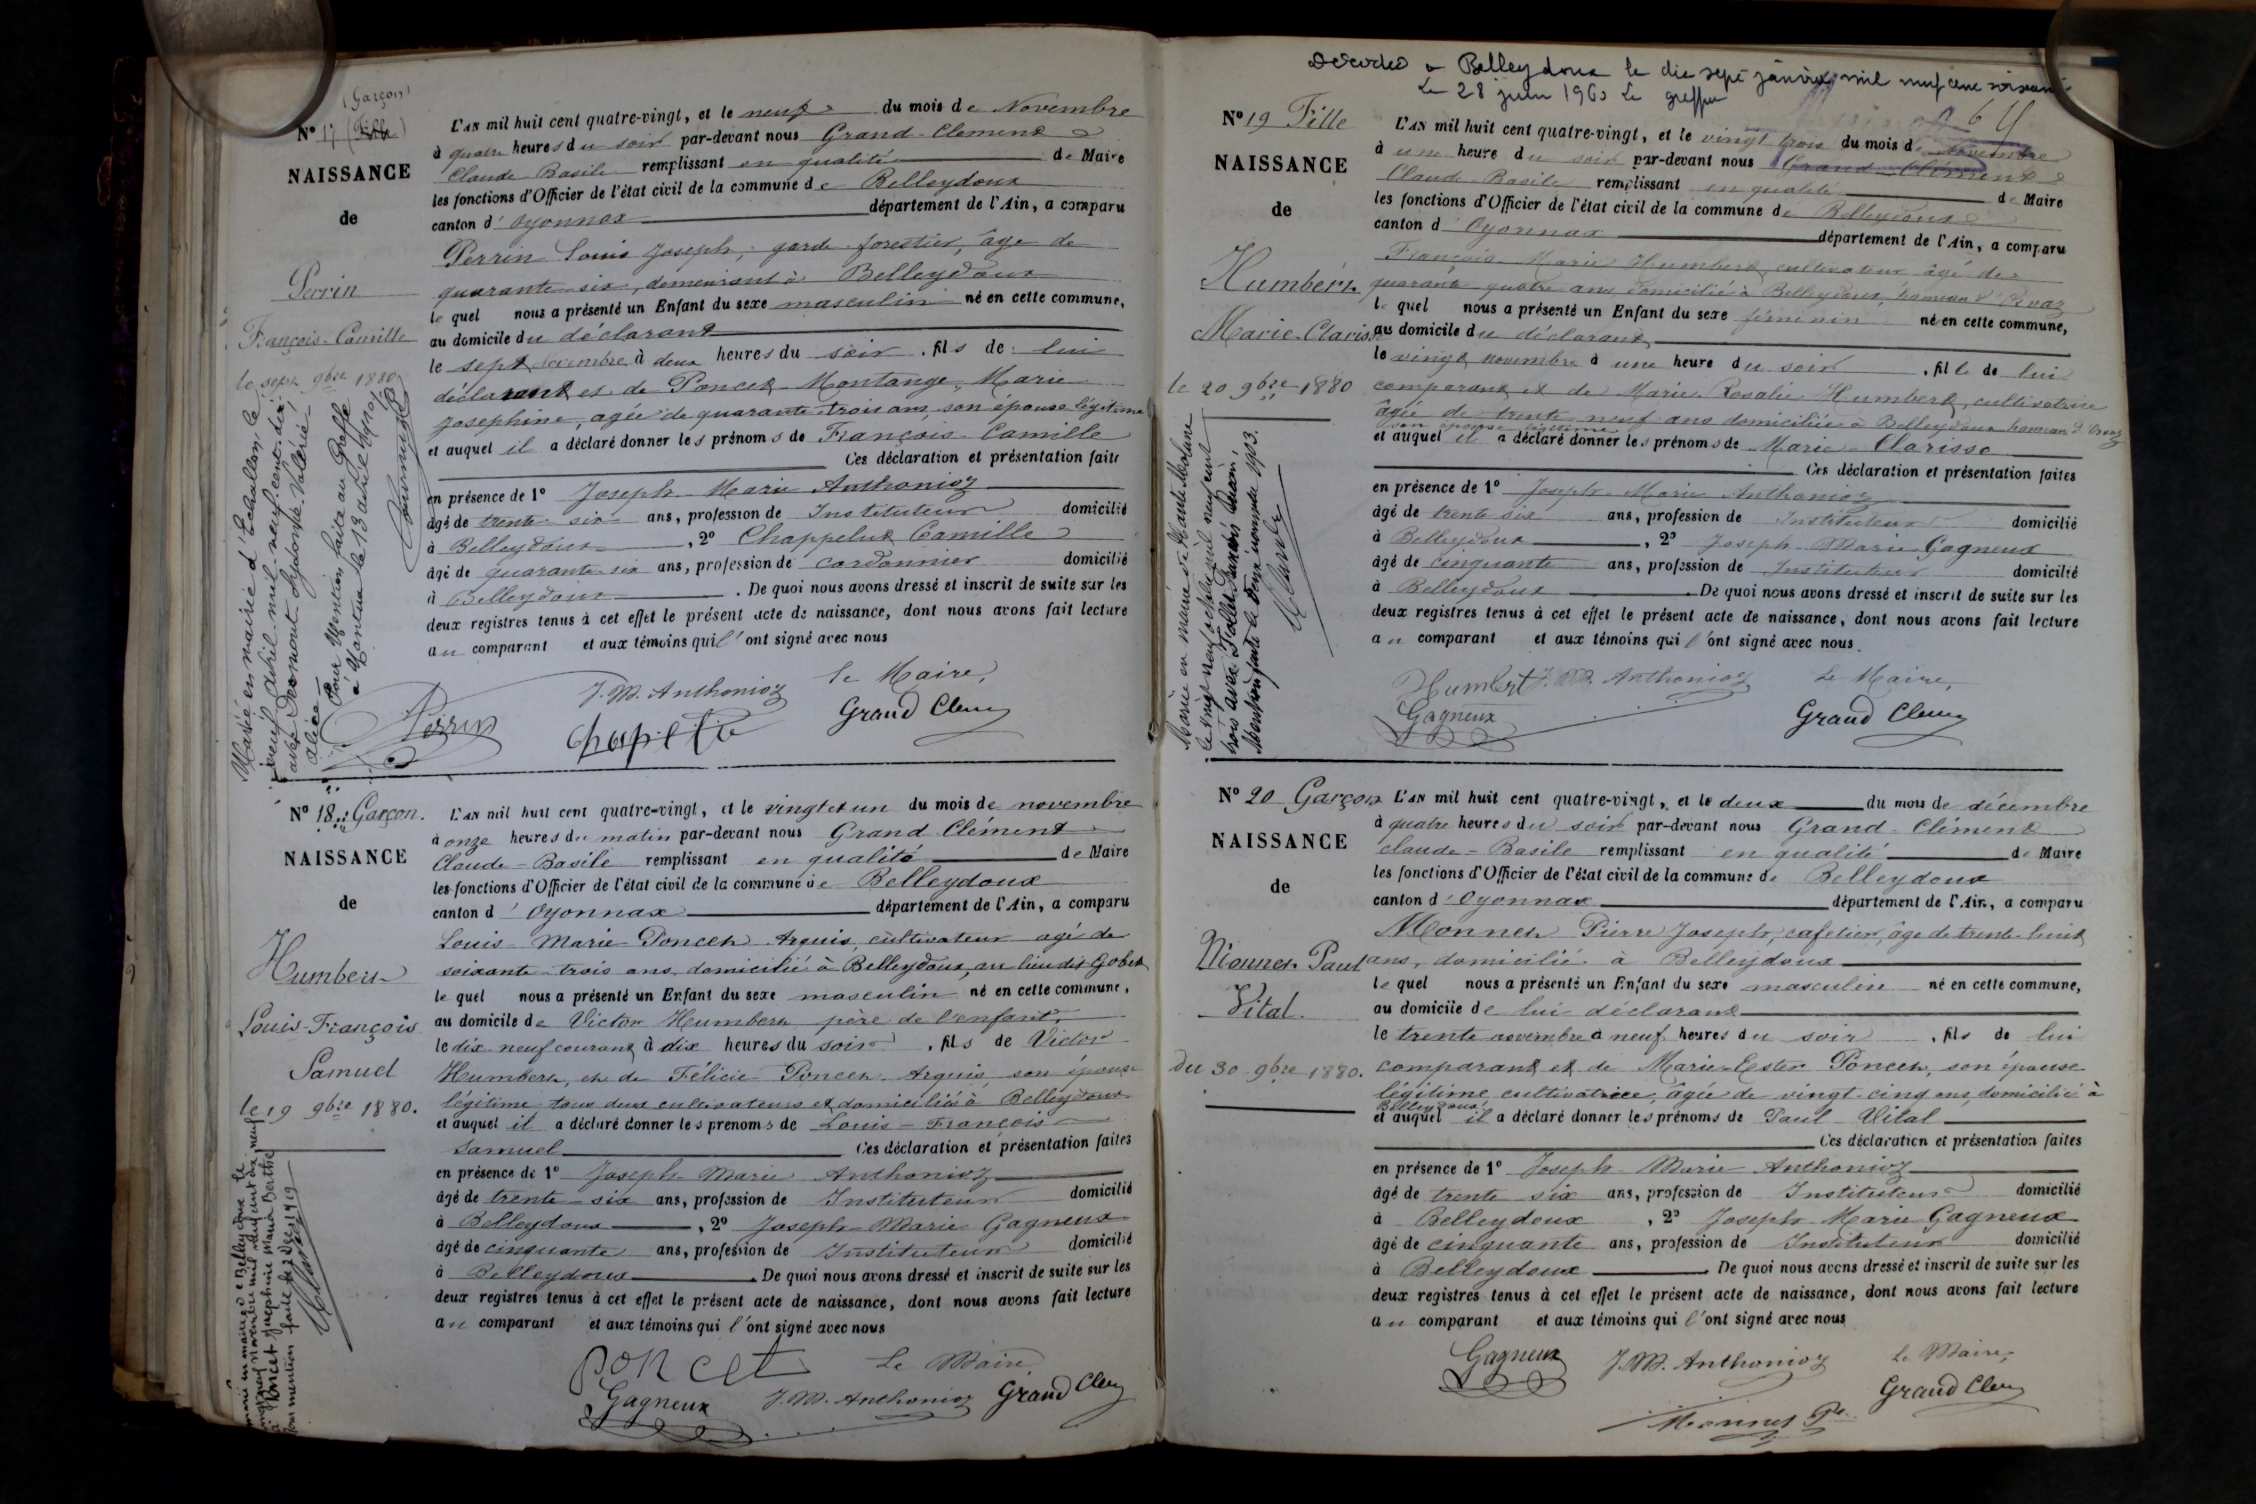 (Garçon)
Nº 17 (Fille)
NAISSANCE
de
Perrin
François-Camille
le sept 9bre 1880
Marié en mairie d'Echallon le
neuf avril mil neuf cent dix
avec Dromont Sydonie Valérie
Alice
Pour Mention faite au Greffe
à Nantua le 13 avril 1910
L'AN mil huit cent quatre-vingt, et le neuf du mois de Novembre
à quatre heures du soir par-devant nous Grand-Clément
Claude Basile remplissant en qualité de Maire
les fonctions d'Officier de l'état civil de la commune de Belleydoux
canton d'Oyonnax département de l'Ain, a comparu
Perrin Louis Joseph, garde forestier, âgé de
quarante-six, demeurant à Belleydoux
le quel nous a présenté un Enfant du sexe masculin né en cette commune,
au domicile du déclarant
le sept novembre à deux heures du soir, fils de lui
déclarant et de Poncet-Montange, Marie
Josephine, agée de quarante-trois ans, son épouse légitime
et auquel il a déclaré donner les prénoms de François-Camille
Ces déclaration et présentation faite
en présence de 1º Joseph-Marie Anthonioz
âgé de trente-six ans, profession de Instituteur domicilié
à Belleydoux, 2º Chappelut Camille
âgé de quarante-six ans, profession de cordonnier domicilié
à Belleydoux. De quoi nous avons dressé et inscrit de suite sur les
deux registres tenus à cet effet le présent acte de naissance, dont nous avons fait lecture
au comparant et aux témoins qui l'ont signé avec nous
J. M. Anthonioz le Maire,
Perrin Grand Clem
Nº 18. Garçon.
NAISSANCE
de
Humbert
Louis-François
Samuel
le 19 9bre 1880.
marié en mairie de Belleydoux le
vingt neuf novembre mil neuf cent dix neuf
à Poncet Josephine Maria Berthe
Pour mention faite le 2 Dec 1919
L'AN mil huit cent quatre-vingt, et le vingt et un du mois de novembre
à onze heures du matin par-devant nous Grand Clément
Claude-Basile remplissant en qualité de Maire
les fonctions d'Officier de l'état civil de la commune de Belleydoux
canton d'Oyonnax département de l'Ain, a comparu
Louis-Marie Poncet Arguis, cultivateur agé de
soixante-trois ans, domicilié à Belleydoux, au lieu dit Gobet
le quel nous a présenté un Enfant du sexe masculin né en cette commune,
au domicile de Victor Humbert père de l'enfant,
le dix neuf courant à dix heures du soir, fils de Victor
Humbert, et de Félicie Poncet Arguis, son épouse
légitime tous deux cultivateurs et domiciliés à Belleydoux
et auquel il a déclaré donner les prénoms de Louis-François
Samuel Ces déclaration et présentation faites
en présence de 1º Joseph-Marie Anthonioz
âgé de trente-six ans, profession de Instituteur domicilié
à Belleydoux, 2º Joseph-Marie Gagneux
âgé de cinquante ans, profession de Instituteur domicilié
à Belleydoux. De quoi nous avons dressé et inscrit de suite sur les
deux registres tenus à cet effet le présent acte de naissance, dont nous avons fait lecture
au comparant et aux témoins qui l'ont signé avec nous
poncet Le Maire
Gagneux J. M. Anthonioz Grand Clem
Décédée à Belleydoux le dix sept janvier mil neuf cent soixante
Le 28 juin 1960 Le greffier
Nº 19 Fille
NAISSANCE
de
Humbert
Marie-Clarisse
le 20 9bre 1880
Mariée en mairie de
le vingt neuf octobre mil neuf cent
trois avec
Mention faite le deux novembre 1903.
L'AN mil huit cent quatre-vingt, et le vingt trois du mois de novembre
à une heure du soir par-devant nous Grand-Clément
Claude-Basile remplissant en qualité de Maire
les fonctions d'Officier de l'état civil de la commune de Belleydoux
canton d'Oyonnax département de l'Ain, a comparu
François-Marie Humbert, cultivateur âgé de
quarante quatre ans domicilié à Belleydoux, hameau d'Orvaz
le quel nous a présenté un Enfant du sexe féminin né en cette commune,
au domicile du déclarant,
le vingt novembre à une heure du soir, fille de lui
comparant et de Marie-Rosalie Humbert, cultivatrice
âgée de trente neuf ans domiciliée à Belleydoux hameau d'Orvaz
son épouse légitime
et auquel il a déclaré donner les prénoms de Marie-Clarisse
Ces déclaration et présentation faites
en présence de 1º Joseph-Marie Anthonioz
âgé de trente six ans, profession de Instituteur domicilié
à Belleydoux, 2º Joseph-Marie Gagneux
âgé de cinquante ans, profession de Instituteur domicilié
à Belleydoux. De quoi nous avons dressé et inscrit de suite sur les
deux registres tenus à cet effet le présent acte de naissance, dont nous avons fait lecture
au comparant et aux témoins qui l'ont signé avec nous.
Humbert J. M. Anthonioz Le Maire,
Gagneux Grand Clem
Nº 20 Garçon
NAISSANCE
de
Monnet Paul
Vital.
du 30 9bre 1880.
L'AN mil huit cent quatre-vingt, et le deux du mois de décembre
à quatre heures du soir par-devant nous Grand-Clément
Claude-Basile remplissant en qualité de Maire
les fonctions d'Officier de l'état civil de la commune de Belleydoux
canton d'Oyonnax département de l'Ain, a comparu
Monnet Pierre Joseph, cafetier, âgé de trente-huit
ans, domicilié à Belleydoux
le quel nous a présenté un Enfant du sexe masculin né en cette commune,
au domicile de lui déclarant
le trente novembre à neuf heures du soir, fils de lui
comparant et de Marie-Ester Poncet, son épouse
légitime, cultivatrice, âgée de vingt-cinq ans, domicilié à
Belleydoux,
et auquel il a déclaré donner les prénoms de Paul-Vital
Ces déclaration et présentation faites
en présence de 1º Joseph-Marie Anthonioz
âgé de trente six ans, profession de Instituteur domicilié
à Belleydoux, 2º Joseph-Marie Gagneux
âgé de cinquante ans, profession de Instituteur domicilié
à Belleydoux. De quoi nous avons dressé et inscrit de suite sur les
deux registres tenus à cet effet le présent acte de naissance, dont nous avons fait lecture
au comparant et aux témoins qui l'ont signé avec nous
Gagneux J. M. Anthonioz Le Maire,
Grand Clem
Monnet Pre